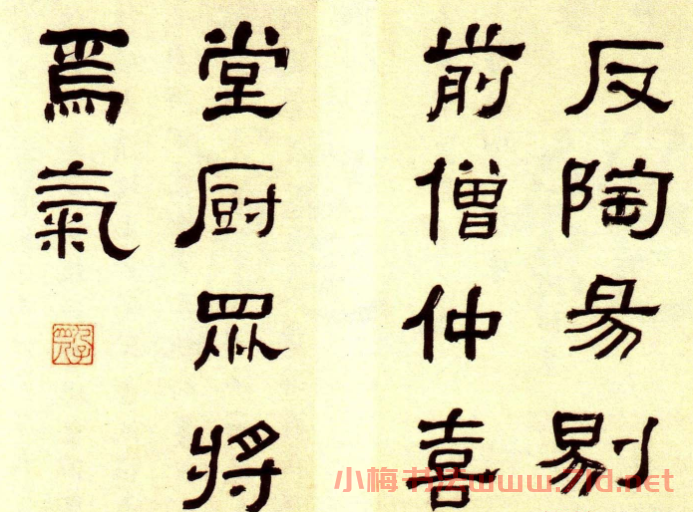 反陶易剔
前僧仲喜
堂厨眾將
焉氣
小梅书法www.71d.net